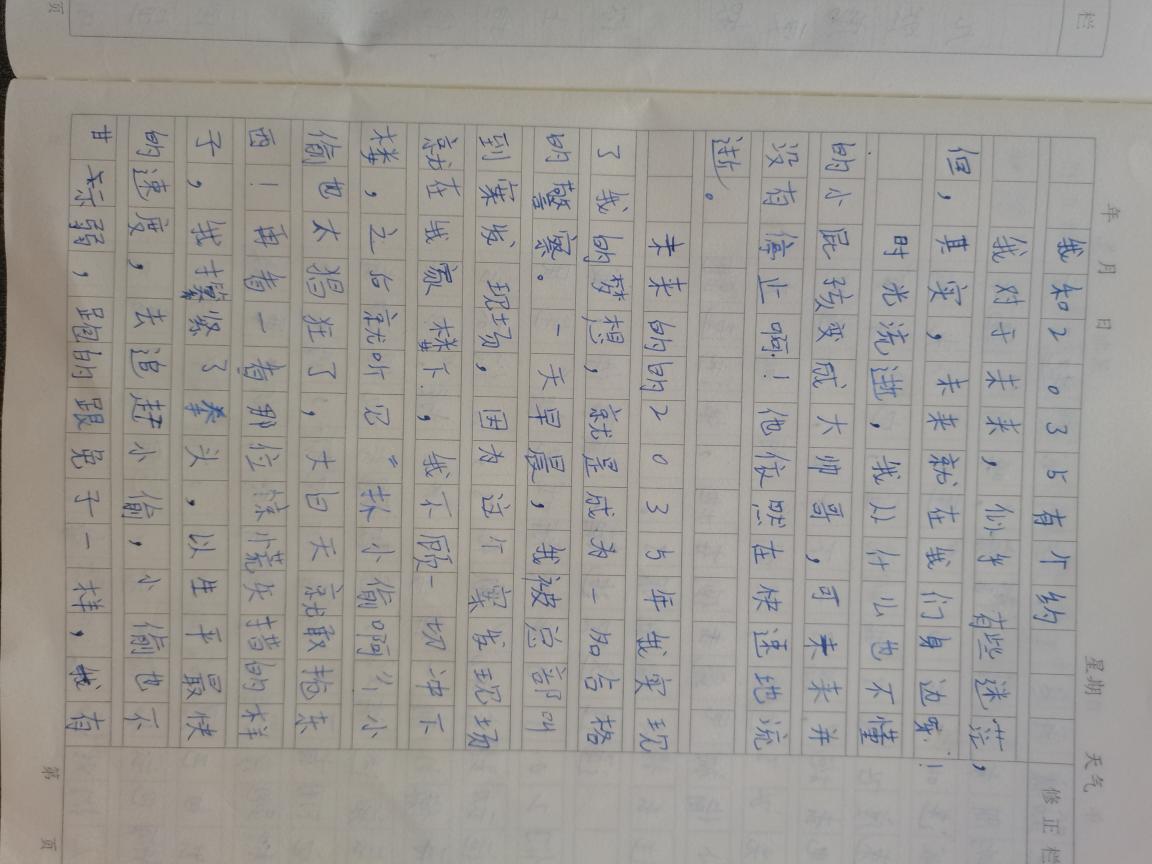 年 月 日 星期 天气
修正栏
我和2035有个约
我对于未来，似乎有些迷茫，
但，其实，未来就在我们身边窜！
时光流逝，我从什么也不懂
的小屁孩变成大帅哥，可未来并
没有停止啊！他依然在快速地流
逝。
未来的的2035年我实现
了我的梦想，就是成为一名合格
的警察。一天早晨，我被总部叫
到案发现场，因为这个案发现场
就在我家楼下，我不顾一切冲下
楼，立台就听见“抓小偷啊”小
偷也太猖狂了，大白天就敢抢东
西！再看一看那位惊慌失措的样
子，我攥紧了拳头，以生平最快
的速度，去追赶小偷，小偷也不
甘示弱，跑的跟兔子一样，我有
第 页
页
栏